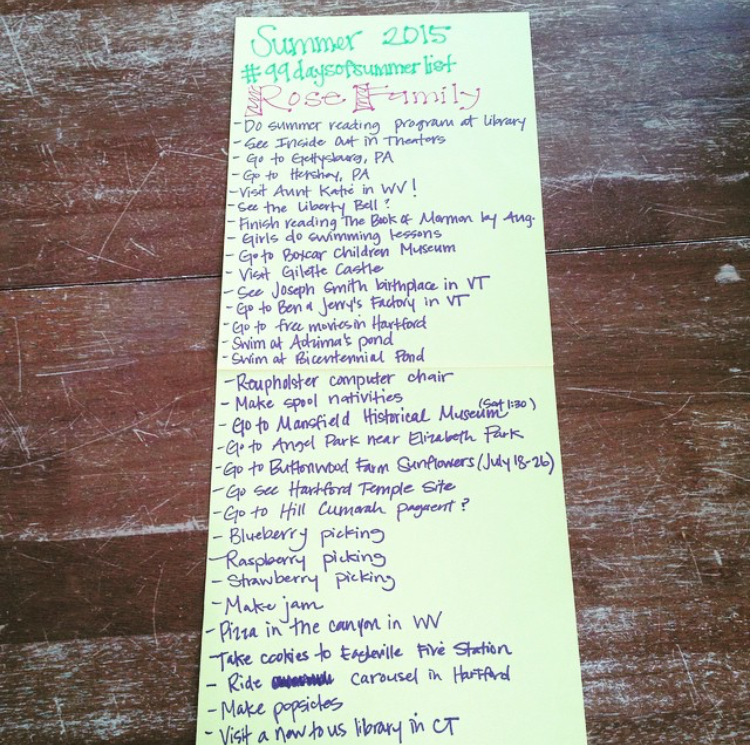 Summer 2015
#99daysofsummerlist
Rose Family
- Do summer reading program at library
- See Inside Out in Theaters
- Go to Gettysburg, PA
- Go to Hershey, PA
- Visit Aunt Katie in WV!
- See the Liberty Bell?
- Finish reading The Book of Mormon by Aug.
- Girls do swimming lessons
- Go to Boxcar Children Museum
- Visit Gilette Castle
- See Joseph Smith birthplace in VT
- Go to Ben & Jerry's Factory in VT
- Go to free movies in Hartford
- Swim at pond
- Swim at Bicentennial Pond
- Reupholster computer chair
- Make spool nativities
- Go to Mansfield Historical Museum (Sat 1:30)
- Go to Angel Park near Elizabeth Park
- Go to Buttonwood Farm Sunflowers (July 18-26)
- Go see Hartford Temple Site
- Go to Hill Cumorah pagaent?
- Blueberry picking
- Raspberry picking
- Strawberry picking
- Make jam
- Pizza in the canyon in WV
- Take cookies to Eagleville Fire Station
- Ride carousel in Hartford
- Make popsicles
- Visit a new to us library in CT